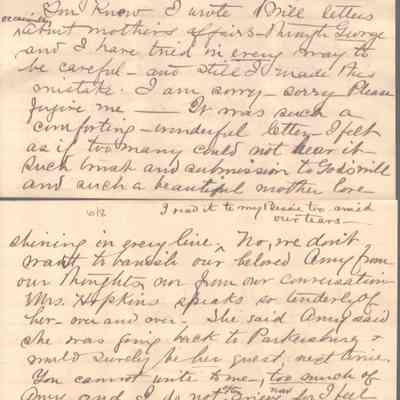 You Know I wrote Will letters
about mother's affairs - through George
and I have tried in every way to
be careful - and still I made this
mistake. I am sorry - sorry Please
forgive me — It was such a
comforting - wonderful letter - I felt
as if too many could not hear it -
Such trust and submission to God's will
and such a beautiful mother love
I read it to my too amid
our tears -
shining in every line. No, we don't
want to banish our beloved Amy from
our thoughts, nor from our conversation
Mrs. Hopkins speaks so tenderly of
her - over and over. She said Amy said
she was going back to Parkersburg &
would surely be her guest next time.
You cannot write to me, too much of
Amy and I do not now for I feel